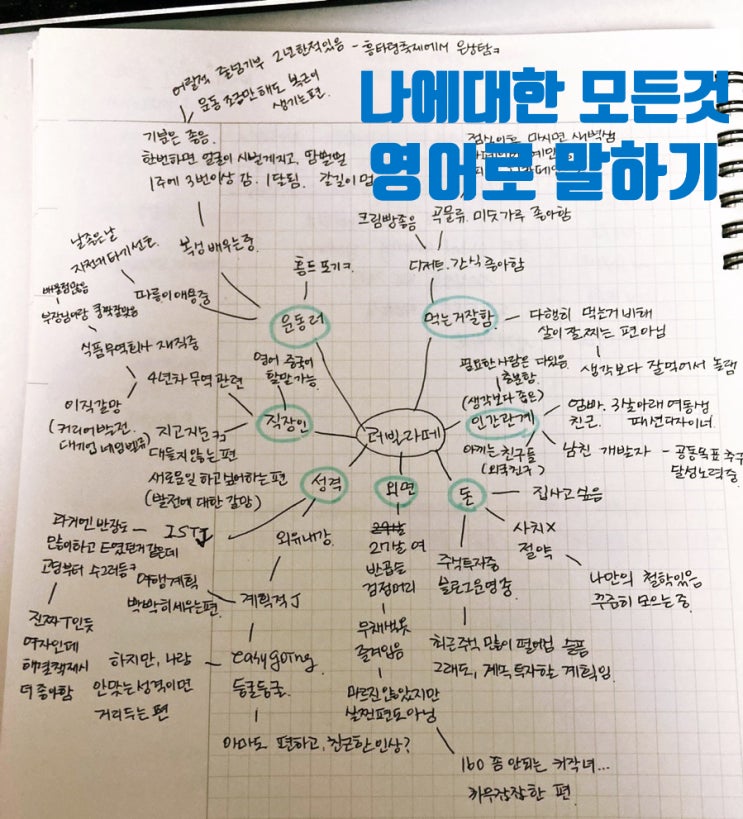 나에대한 모든것
영어로 말하기
어릴적 줄넘기부 2년한적있음 - 흥타령축제에서 은상탐ㅋ
운동 조금만 해도 복근이
생기는편.
기분은 좋음.
한번하면 얼굴이 시뻘게지고, 땀뻘뻘
1주에 3번이상 감. 1달됨. 갈길이 멈
복싱 배우는중.
날좋은날
자전거타기 선호.
따릉이애용중
홈트 포기ㅋ
운동러
크림빵좋음
곡물류. 미숫가루 좋아함
디저트. 간식 좋아함
먹는거잘함.
다행히 먹는거 비해
살이 잘 찌는 편아님
생각보다 잘먹어서 놀램
부장님이랑
식품무역회사 재직중
4년차 무역 관련
영어 중국어
할말 가능.
직장인
이직갈망
(커리어 발전.
지고지순ㅋ
대들지 않는 편
새로운일 하고싶어하는 편
(발전에 대한 갈망)
더빅라떼
필요한 사람은 다있음.
충분함
(생각보다 좁은)
인간관계
엄빠. 3살아래 여동생
친근. 패션디자이너.
아끼는 친구들
(외국친구)
남친 개발자 - 공동목표 추구
달성노력중
성격
ISTJ
과거엔 반장도
많이하고 E였던거같은데
고딩부터 수그러듬ㅋ
진짜 T인듯
여자인데
해결책제시
더 좋아함
외유내강.
계획적 J
여행계획
박박히세우는편.
easygoing
둥글둥글.
하지만, 나랑
안맞는성격이면
거리두는 편
아마도 편하고, 친근한인상?
외면
27살 여
반곱슬
검정머리
무채색옷
즐겨입음
마르진않았지만
살찐편도아님
160 좀 안되는 키작녀...
키우감잡한 편.
돈
집사고싶음
사치X
절약
나만의 철학있음
꾸준히 모으는중.
주식투자중
블로그운영중
최근주식 많이 떨어짐 슬픔
그래도, 계속 투자할 계획임.